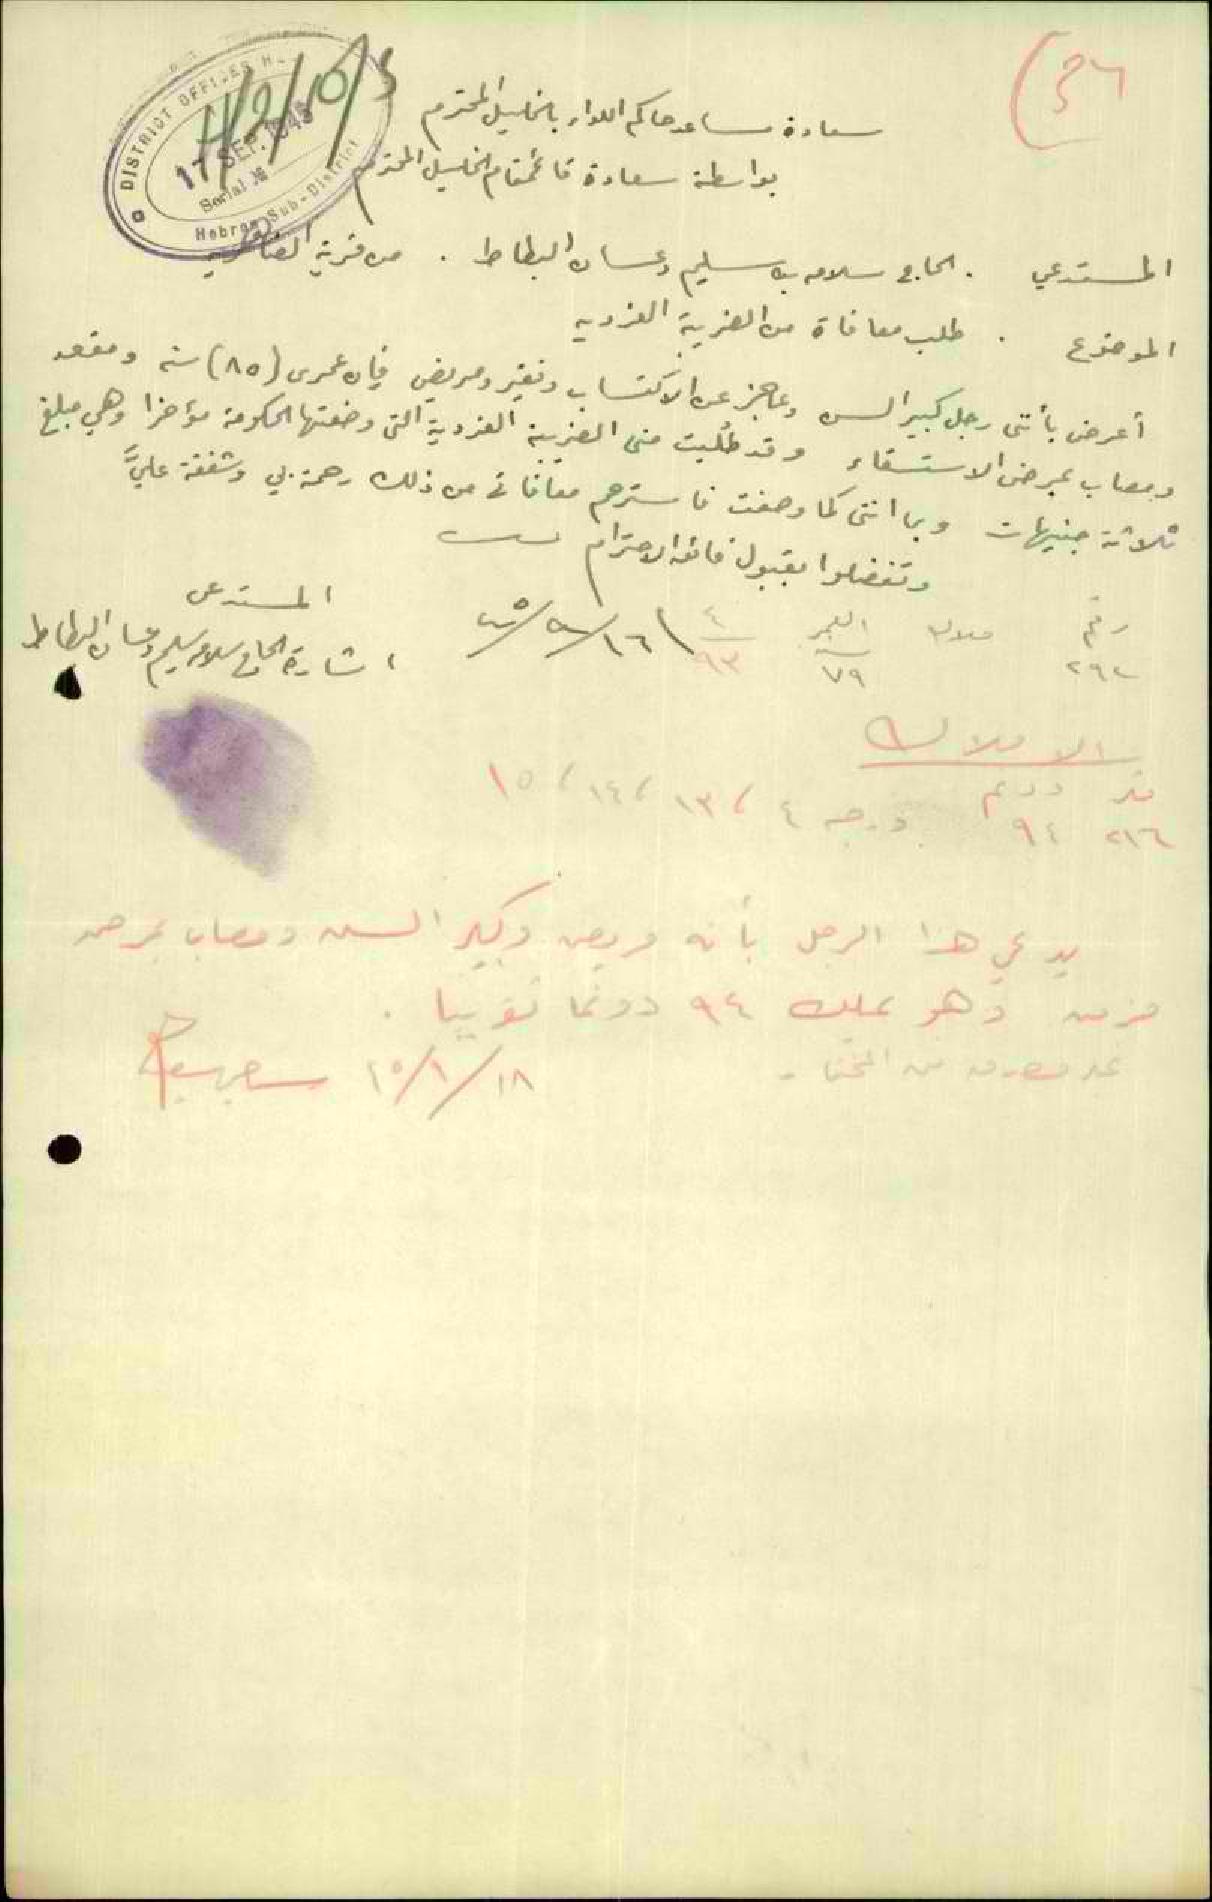 DISTRICT OFFICES
17 SEP. 1945
Serial №
Hebron Sub-District
4/9/10/3
سعادة مساعد حاكم اللواء بالخليل المحترم
بواسطة سعادة قائمقام الخليل المحترم
المستدعي . الحاج سلامه بن سليم دعسان البطاط . من قرية الظاهريه
الموضوع . طلب معافاة من الضريبة الفرديه
أعرض بأنني رجل كبير السن وعاجز عن الاكتساب وفقير ومريض فإن عمري (٨٥) سنه ومقعد
ومصاب بمرض الاستسقاء وقد طُلبت مني الضريبة الفردية التي وضعتها الحكومة مؤخرا وهي مبلغ
ثلاثة جنيهات وبما انني كما وصفت فاسترحم معافاتي من ذلك رحمة بي وشفقة عليَّ
وتفضلوا بقبول فائق الاحترام
١٦/٩/٤٥
المستدعي
اشارة الحاج سلامه سليم دعسان البطاط
رقم ملاك
٢٩٢ ٧٩ ٤ ٩٣
الاملاك
دونم
٢١٦ ٩٤ درجه ٤ ، ١٣ ، ١٤ ، ١٥
يدعي هذا الرجل بأنه مريض وكبير السن ومصاب بمرض
مزمن وهو يملك ٩٤ دونما تقريبا .
غير مصدق من المختار